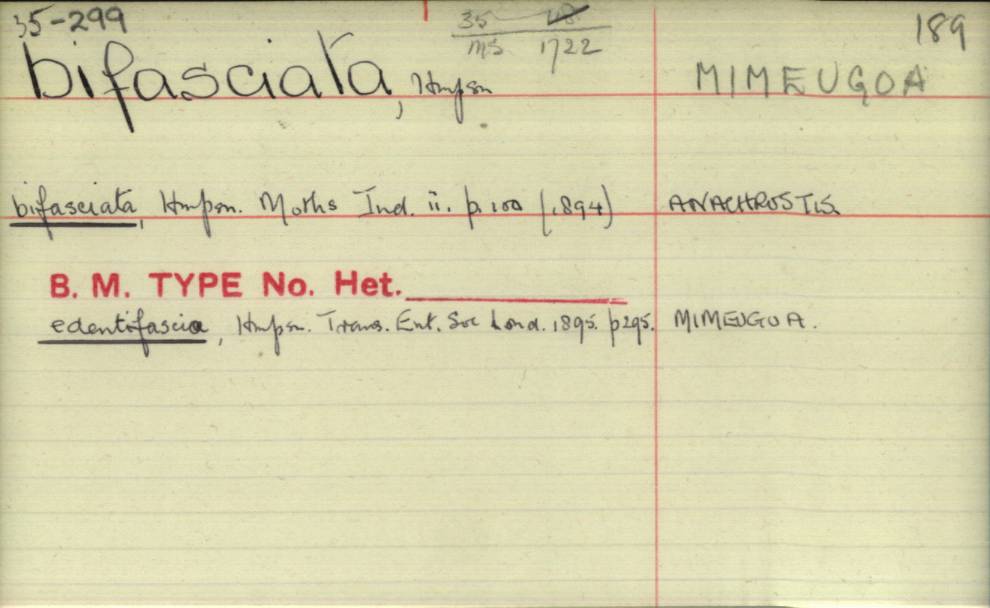 35-299 35 189
MS 1722
bifasciata, Hmpsn MIMEUGOA
bifasciata, Hmpsn. Moths Ind. ii. p. 100 (1894) ANACHROSTIS
B. M. TYPE No. Het.
edentifascia, Hmpsn. Trans. Ent. Soc Lond. 1895. p295. MIMEUGOA.